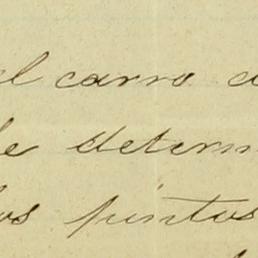 el carro d
de determ
los puntos